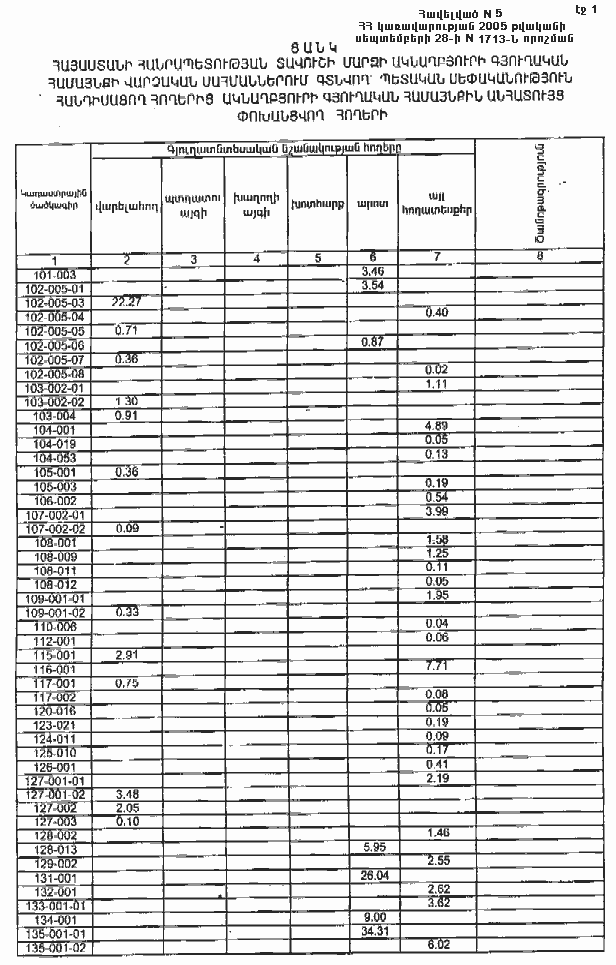 Հավելված N 5
էջ 1
ՀՀ կառավարության 2005 թվականի
սեպտեմբերի 28-ի N 1713-Ն որոշման
ՑԱՆԿ
ՀԱՅԱՍՏԱՆԻ ՀԱՆՐԱՊԵՏՈՒԹՅԱՆ ՏԱՎՈՒՇԻ ՄԱՐԶԻ ԱԿՆԱՂԲՅՈՒՐԻ ԳՅՈՒՂԱԿԱՆ
ՀԱՄԱՅՆՔԻ ՎԱՐՉԱԿԱՆ ՍԱՀՄԱՆՆԵՐՈՒՄ ԳՏՆՎՈՂ ՊԵՏԱԿԱՆ ՍԵՓԱԿԱՆՈՒԹՅՈՒՆ
ՀԱՆԴԻՍԱՑՈՂ ՀՈՂԵՐԻՑ ԱԿՆԱՂԲՅՈՒՐԻ ԳՅՈՒՂԱԿԱՆ ՀԱՄԱՅՆՔԻՆ ԱՆՀԱՏՈՒՅՑ
ՓՈԽԱՆՑՎՈՂ ՀՈՂԵՐԻ
Գյուղատնտեսական նշանակության հողերը
Կադաստրային ծածկագիր վարելահող պտղատու այգի խաղողի այգի խոտհարք արոտ այլ հողատեսքեր Ծանոթագրություն
1 2 3 4 5 6 7 8
101-003 3.46
102-005-01 3.54
102-005-03 22.27
102-005-04 0.40
102-005-05 0.71
102-005-06 0.87
102-005-07 0.36
102-005-08 0.02
103-002-01 1.11
103-002-02 1.30
103-004 0.91
104-001 4.89
104-019 0.05
104-053 0.13
105-001 0.36
105-003 0.19
106-002 0.54
107-002-01 3.99
107-002-02 0.09
108-001 1.58
108-009 1.25
108-011 0.11
108-012 0.05
109-001-01 1.95
109-001-02 0.33
110-006 0.04
112-001 0.06
115-001 2.91
116-001 7.71
117-001 0.75
117-002 0.08
120-016 0.05
123-021 0.19
124-011 0.09
125-010 0.17
126-001 0.41
127-001-01 2.19
127-001-02 3.48
127-002 2.05
127-003 0.10
128-002 1.46
128-013 5.95
129-002 2.55
131-001 26.04
132-001 2.62
133-001-01 3.62
134-001 9.00
135-001-01 34.31
135-001-02 6.02